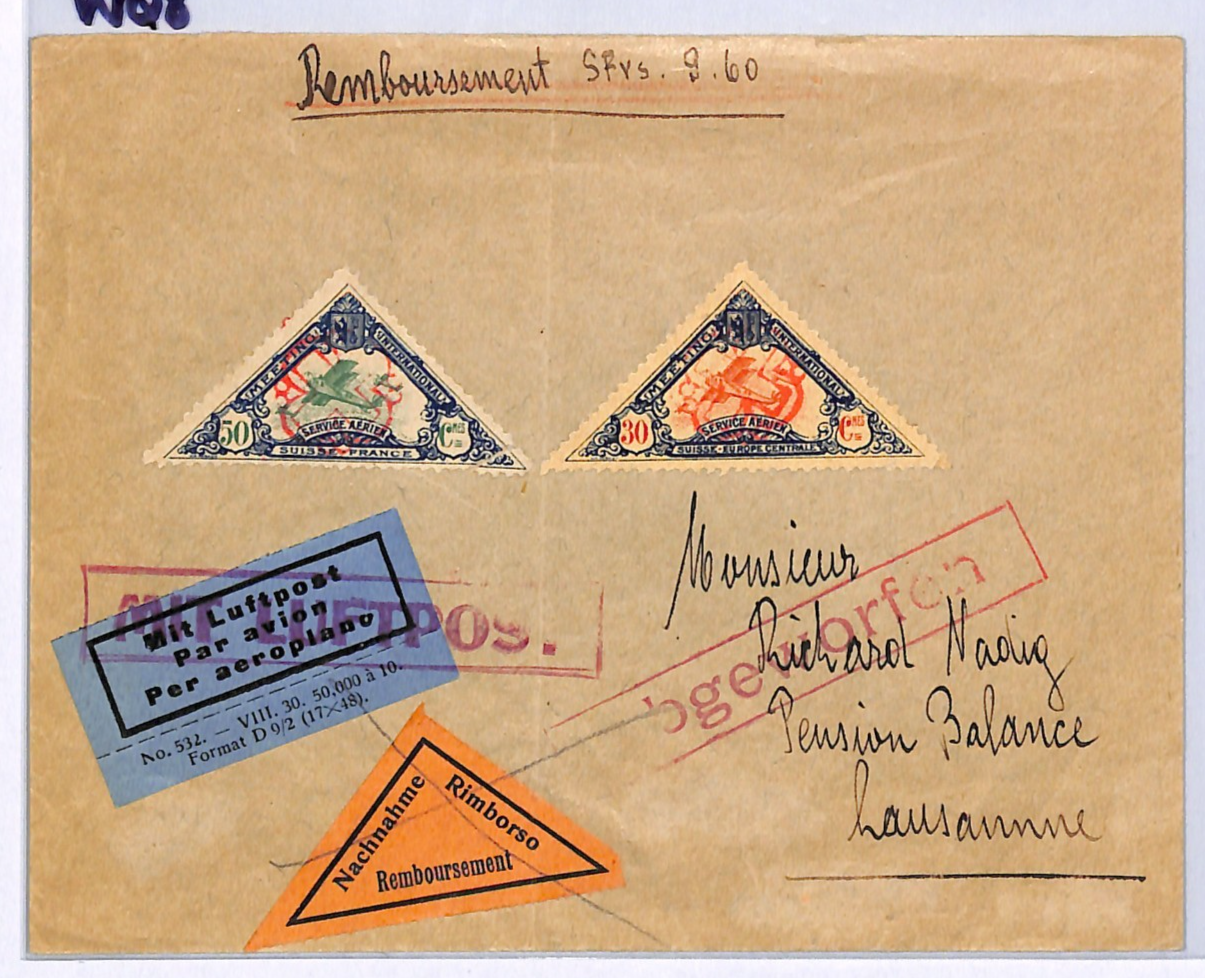 WQ8
Remboursement SFrs. 9.60
MEETING INTERNATIONAL
50 SERVICE AÉRIEN CMES
SUISSE-FRANCE
MEETING INTERNATIONAL
30 SERVICE AÉRIEN CMES
SUISSE-EUROPE CENTRALE
MIT LUFTPOST.
Mit Luftpost
Par avion
Per aeroplano
No. 532. — VIII. 30. 50,000 à 10.
Format D 9/2 (17×48).
bgeworfen
Monsieur
Richard Nadig
Pension Balance
Lausannne
Nachnahme
Rimborso
Remboursement